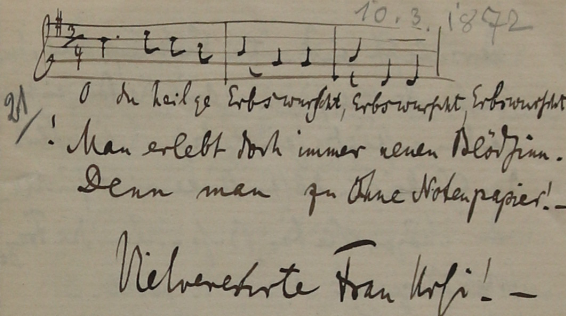 10.3. 1872
3/4
O du heil'ge Erbswurscht, Erbswurscht, Erbswurscht
21/
! Man erlebt doch immer neuen Blödsinn.
Denn man zu Ohne Notenpapier! –
Vielverehrte Frau ! –